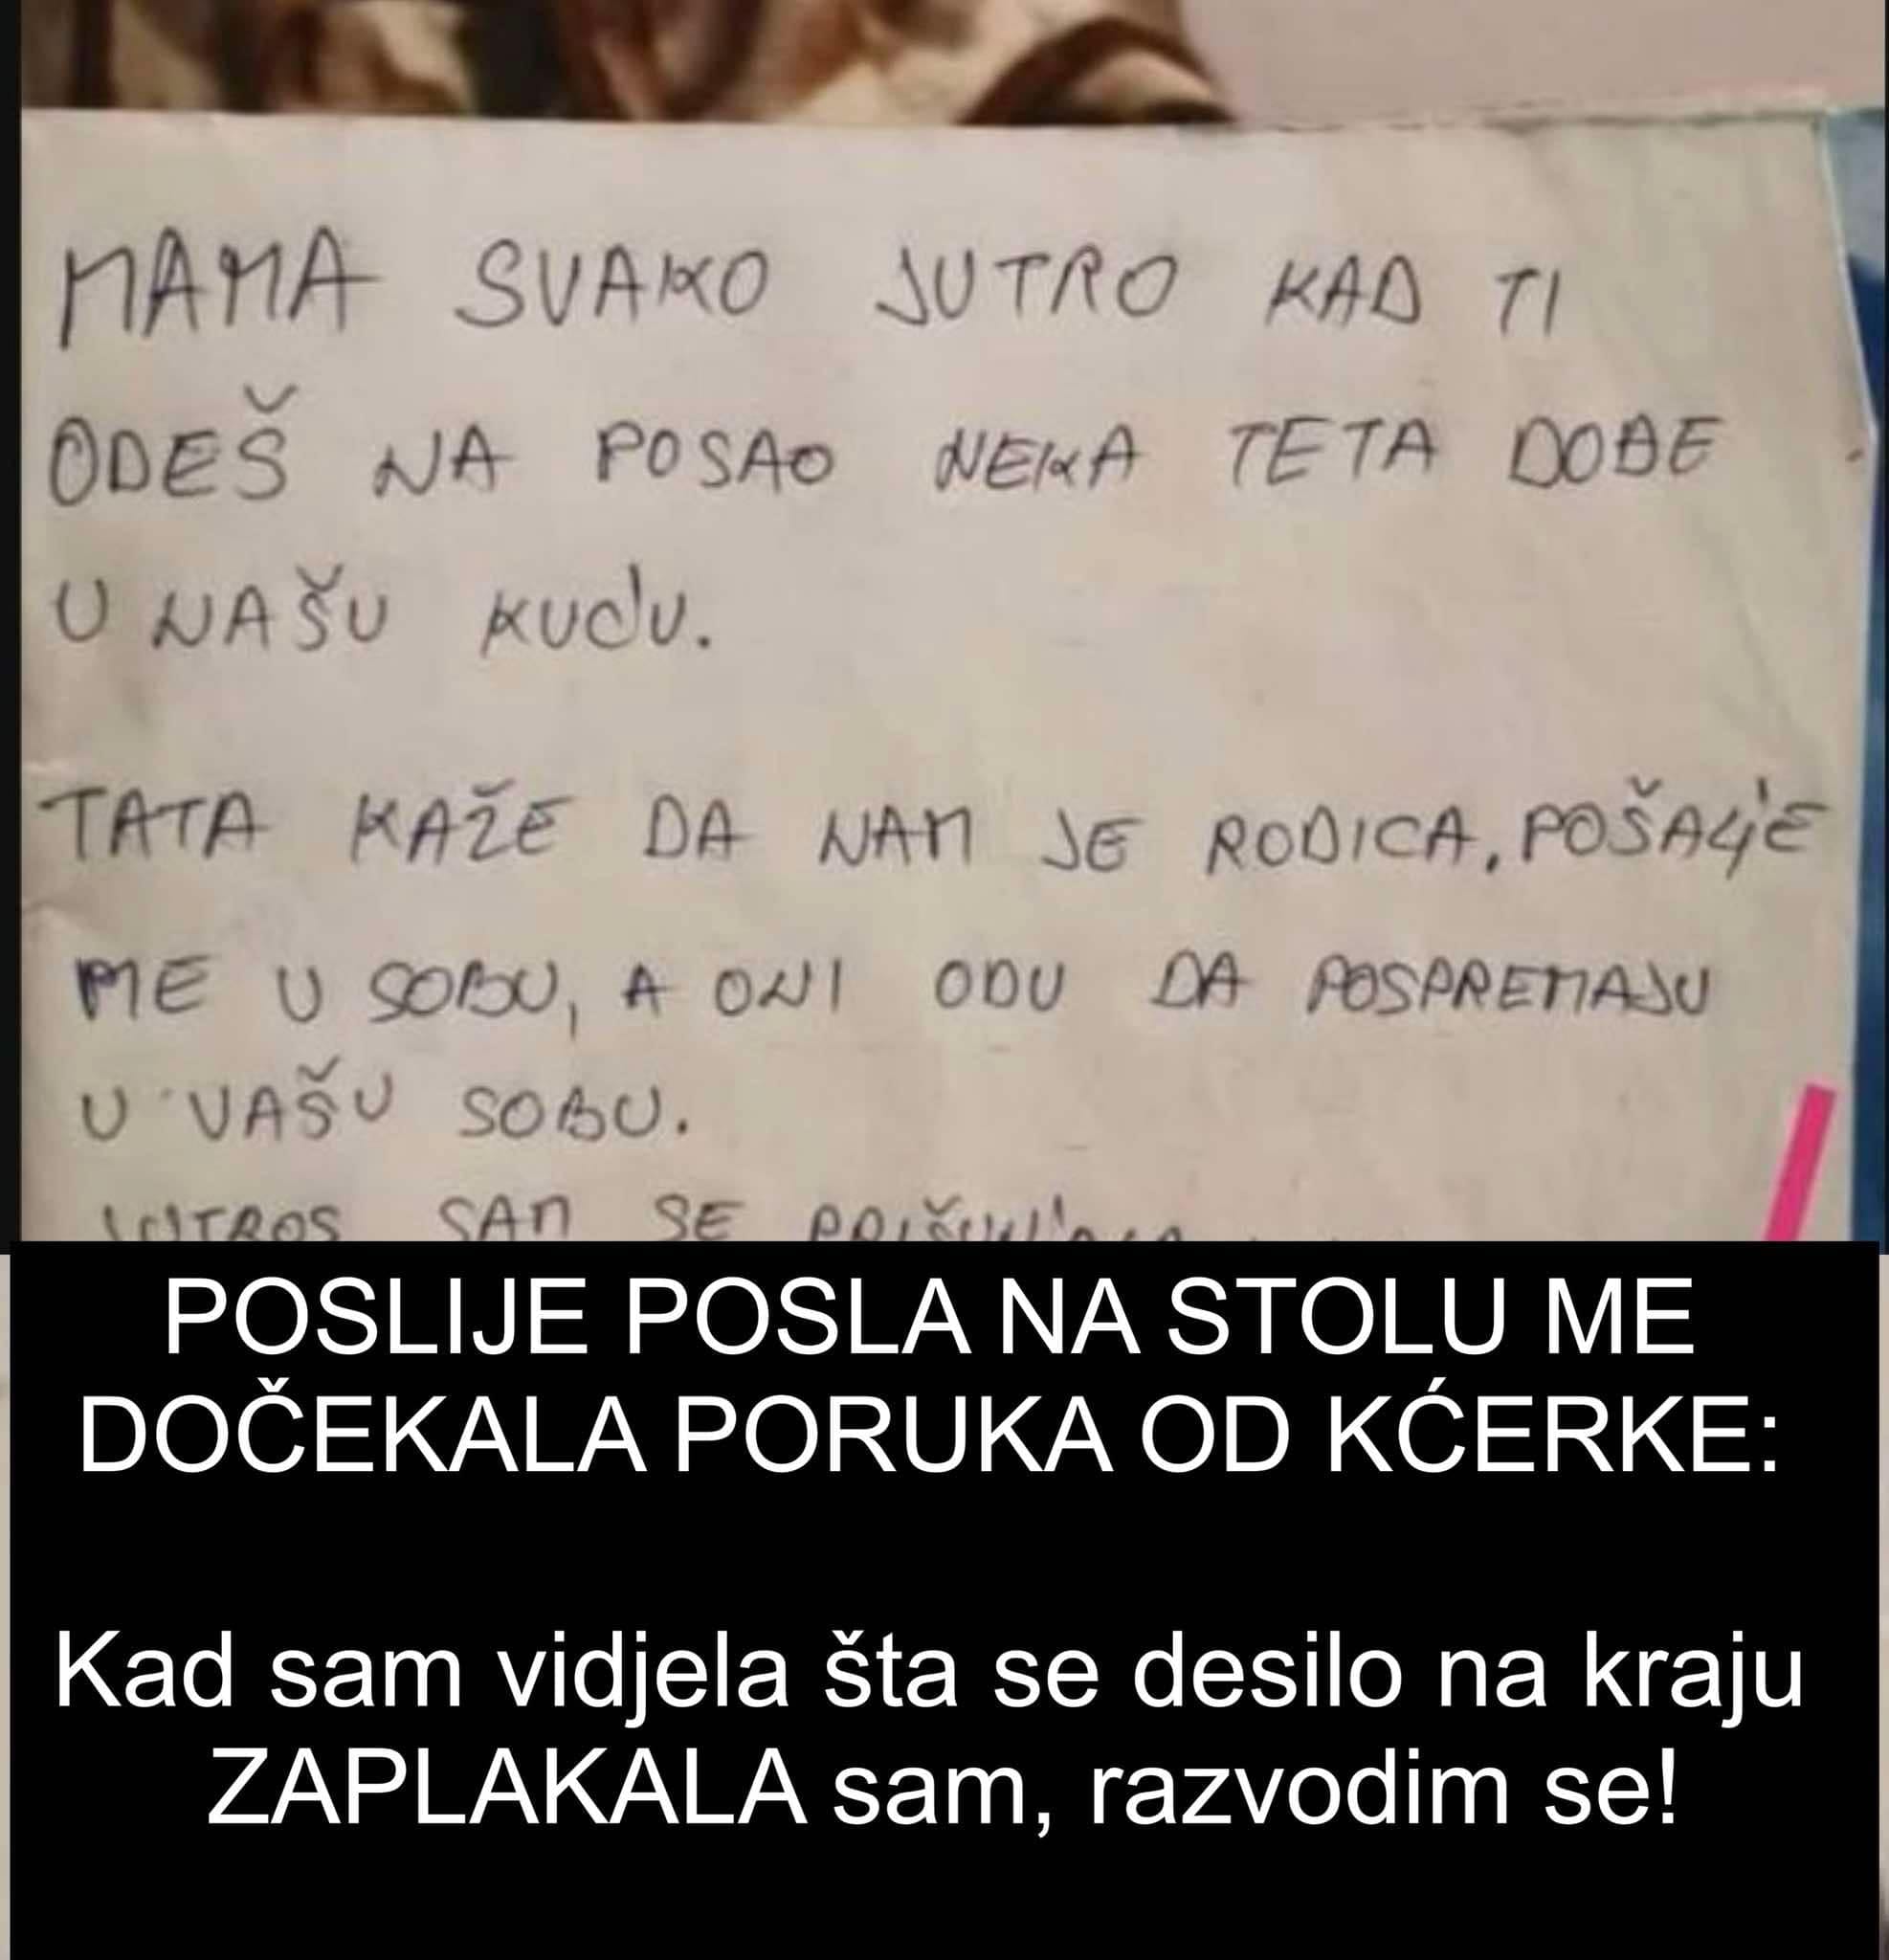 MAMA SVAKO JUTRO KAD TI
ODEŠ NA POSAO NEKA TETA DOĐE
U NAŠU KUĆU.
TATA KAŽE DA NAM JE RODICA, POŠALJE
ME U SOBU, A ONI ODU DA POSPREMAJU
U VAŠU SOBU.
JUTROS SAM SE
POSLIJE POSLA NA STOLU ME
DOČEKALA PORUKA OD KĆERKE:
Kad sam vidjela šta se desilo na kraju
ZAPLAKALA sam, razvodim se!